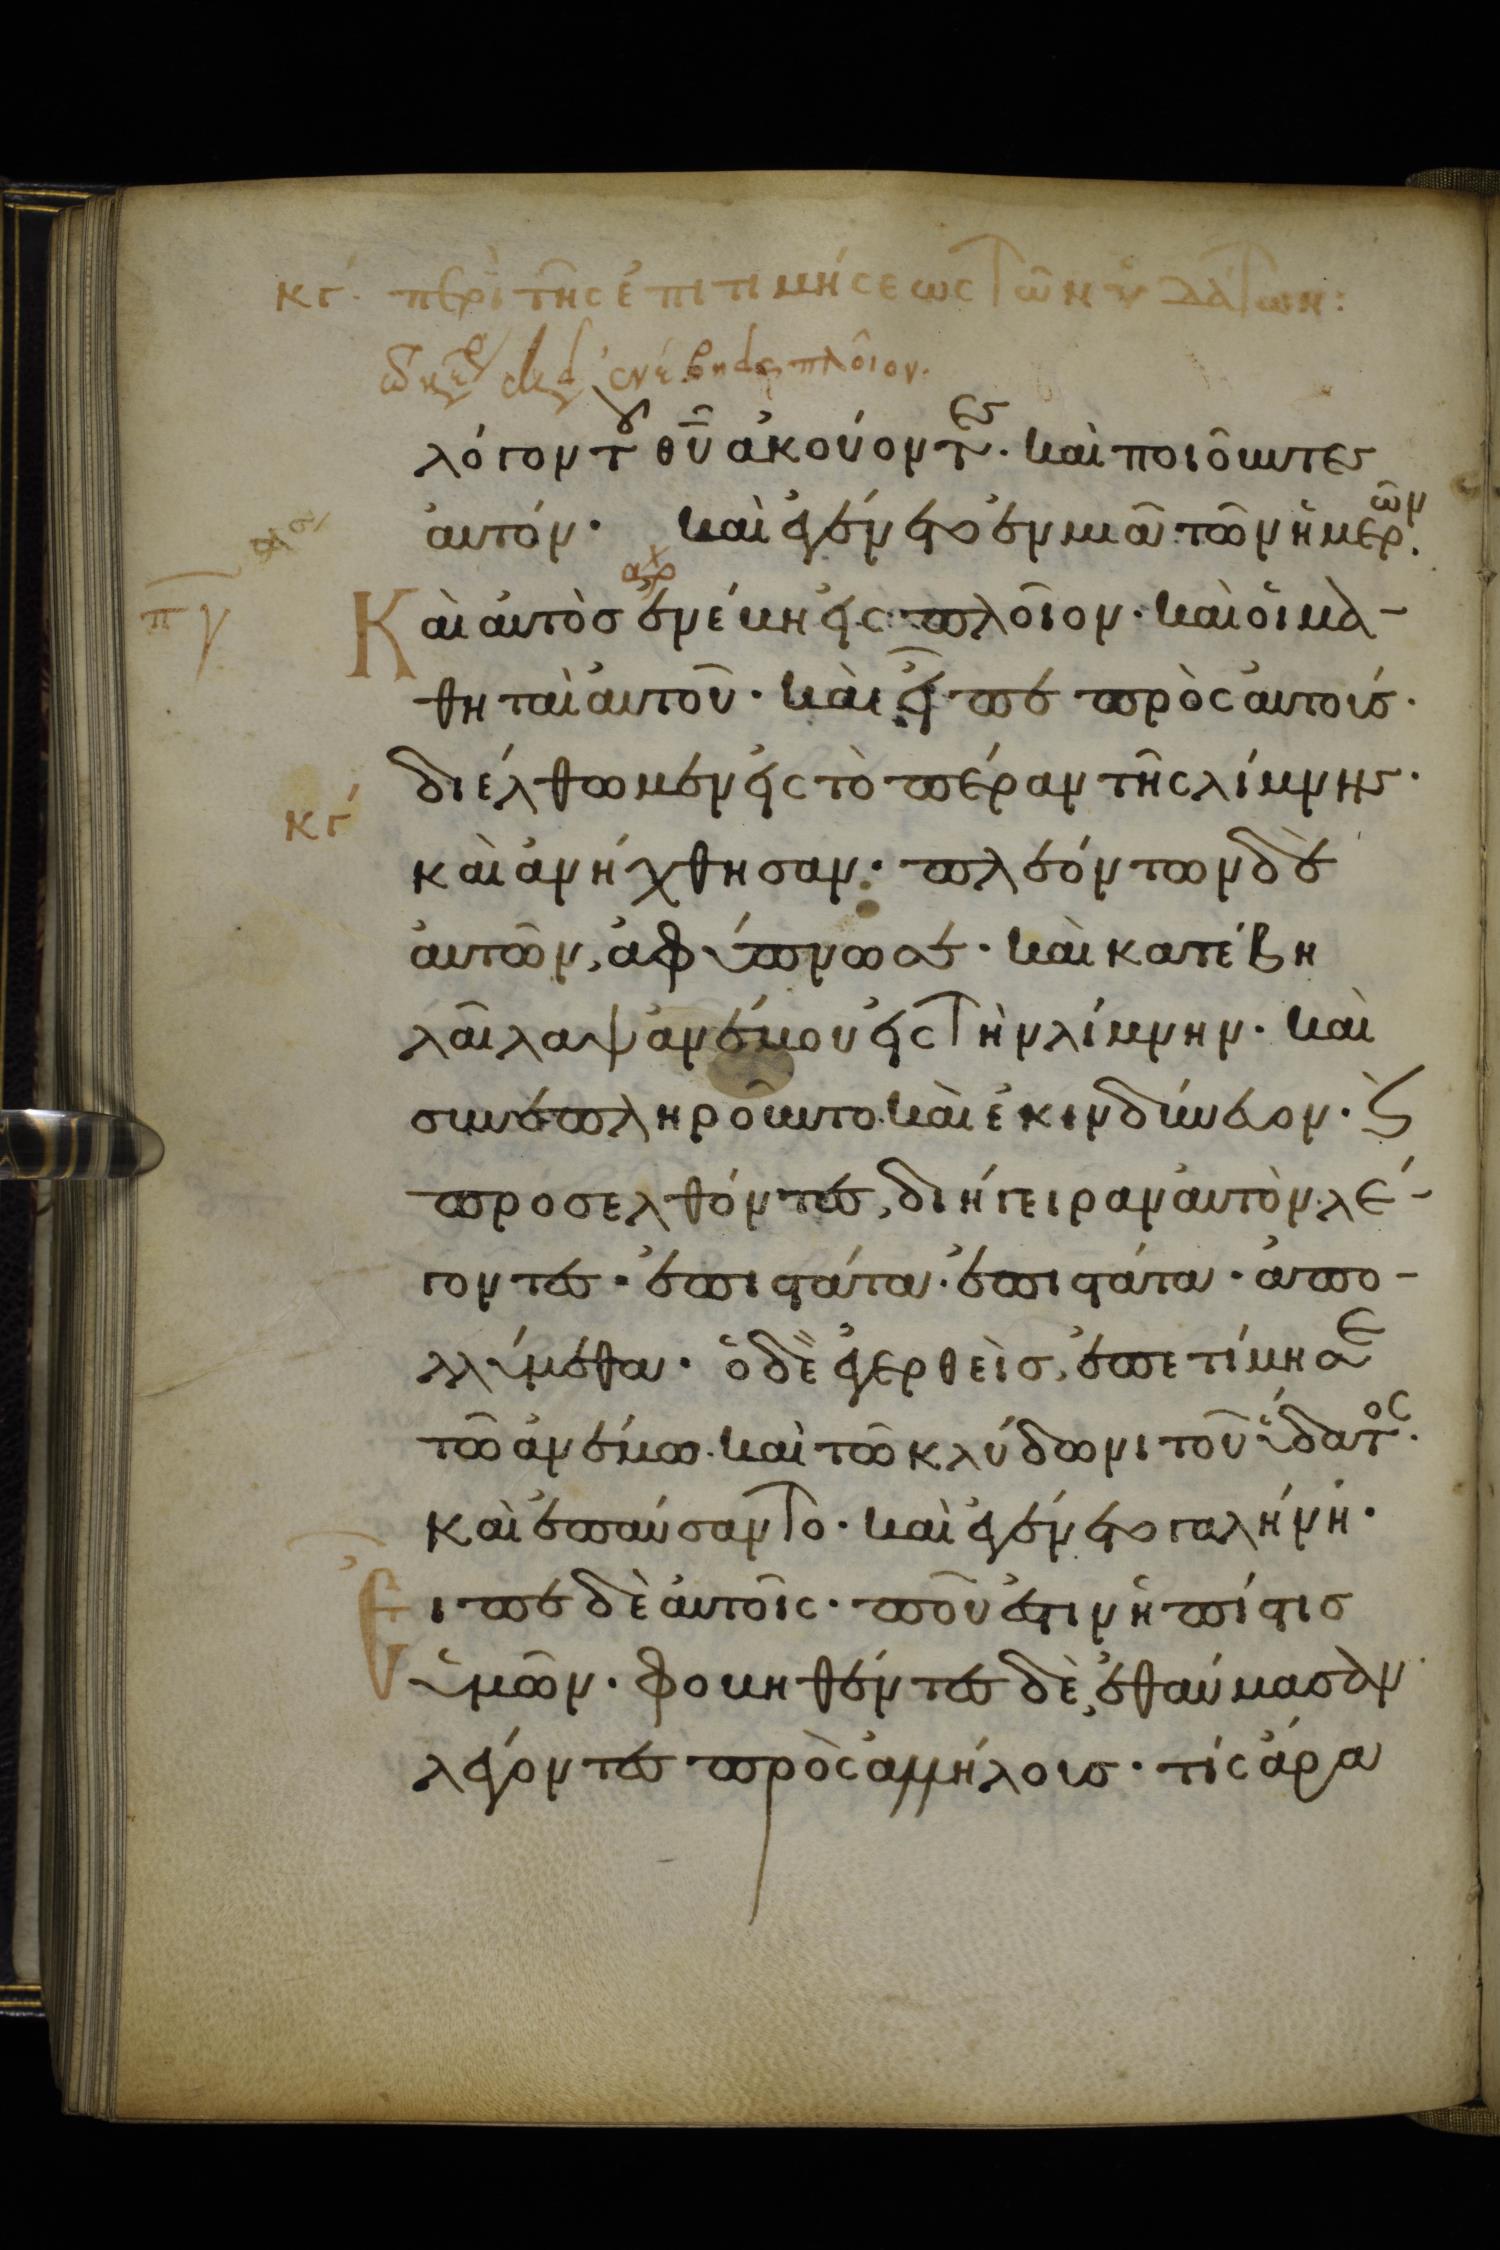 κγ΄. περὶ τῆς ἐπιτιμήσεως τῶν ὑδάτων:
ἐνέβη εἰς πλοῖον.
λόγον τοῦ θῡ ἀκούοντες· καὶ ποιοῦντες
αὐτόν· καὶ ἐγένετο ἐν μιᾶ τῶν ἡμερῶν.
αρχ
πγ Καὶ αὐτὸσ ἐνέβη εἰς πλοῖον· καὶ οἱ μα-
θηταὶ αὐτοῦ· καὶ εἶπε πρὸς αὐτούσ·
διέλθωμεν εἰς τὸ πέραν τῆς λίμνης·
κγ΄ καὶ ἀνήχθησαν· πλεόντων δὲ
αὐτῶν, ἀφύπνωσε· καὶ κατέβη
λαῖλαψ ἀνέμου εἰς τὴν λίμνην· καὶ
συνεπληροῦντο· καὶ ἐκινδύνευον· ϗ
προσελθόντες, διήγειραν αὐτὸν λέ-
γοντες· ἐπιστάτα· ἐπιστάτα· ἀπο-
λλύμεθα· ὁ δὲ ἐγερθεὶσ, ἐπετίμησε
τῶ ἀνέμω· καὶ τῶ κλύδωνι τοῦ ὕδατος.
καὶ ἐπαύσαντο· καὶ ἐγένετο γαλήνη·
Εἶπε δὲ αὐτοῖς· ποῦ ἐστιν ἡ πίστισ
ὑμῶν· φοβηθέντες δὲ, ἐθαύμασαν
λέγοντες πρὸς ἀλλήλουσ· τίς ἄρα